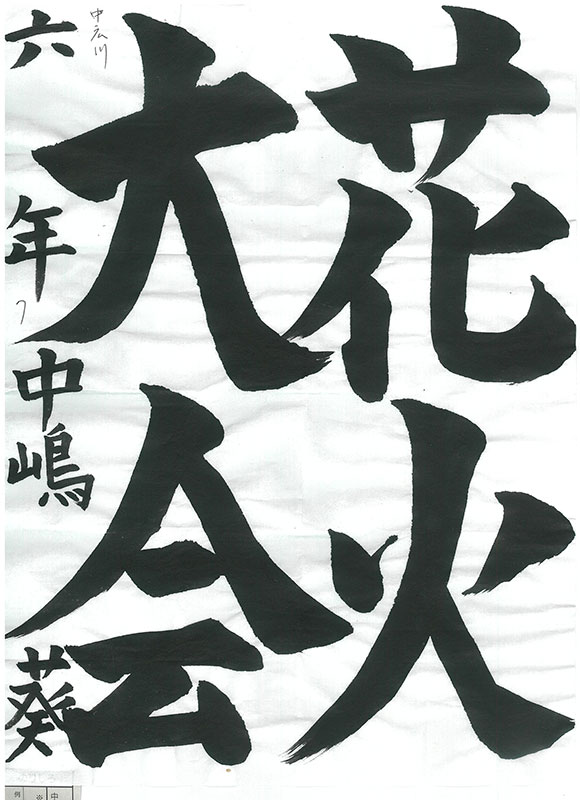 花火
大会
六年 中嶋 葵
中広川